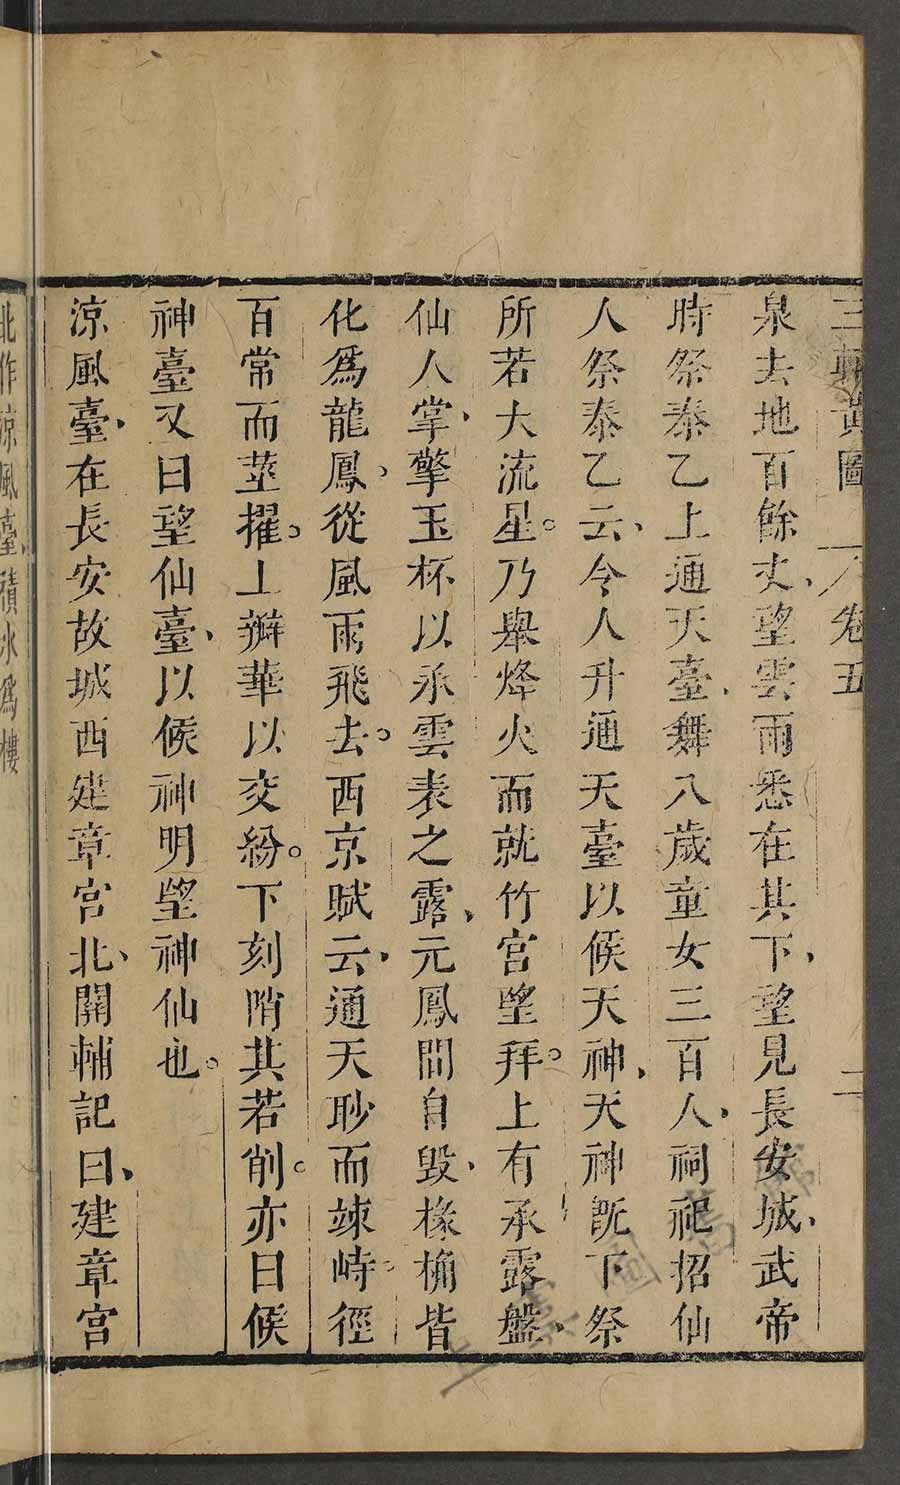 三輔黃圖 卷五 二
泉去地百餘丈、望雲雨悉在其下、望見長安城、武帝
時祭泰乙上通天臺、舞八歲童女三百人、祠祀招仙
人祭泰乙云、令人升通天臺以候天神、天神既下祭
所若大流星。乃舉烽火而就竹宮望拜。上有承露盤、
仙人掌、擎玉杯以承雲表之露、元鳳間自毀、椽桷皆
化爲龍鳳、從風雨飛去。西京賦云、通天眇而竦峙。徑
百常而莖擢。上辬華以交紛。下刻陗其若削。亦曰候
神臺又曰望仙臺、以候神明望神仙也。
涼風臺、在長安故城西建章宮北、關輔記曰、建章宮
北作涼風臺、積木爲樓